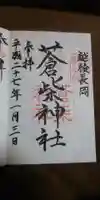 越後長岡
奉拝
蒼柴神社
平成二十七年一月三日
奉拝